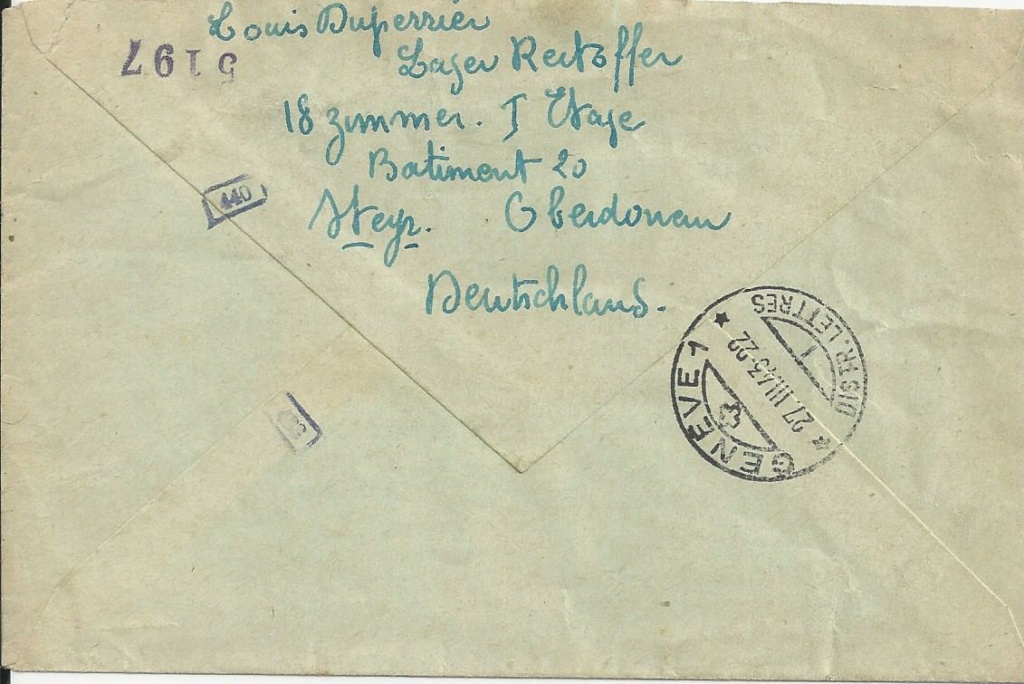 Louis Duperrier
Lager Reitoffer
18 Zimmer. I Etage
Batiment 20
Steyr. Oberdonau
Deutschland.
5197
440
GENEVE 1
DISTR. LETTRES
1
27.III.43-22